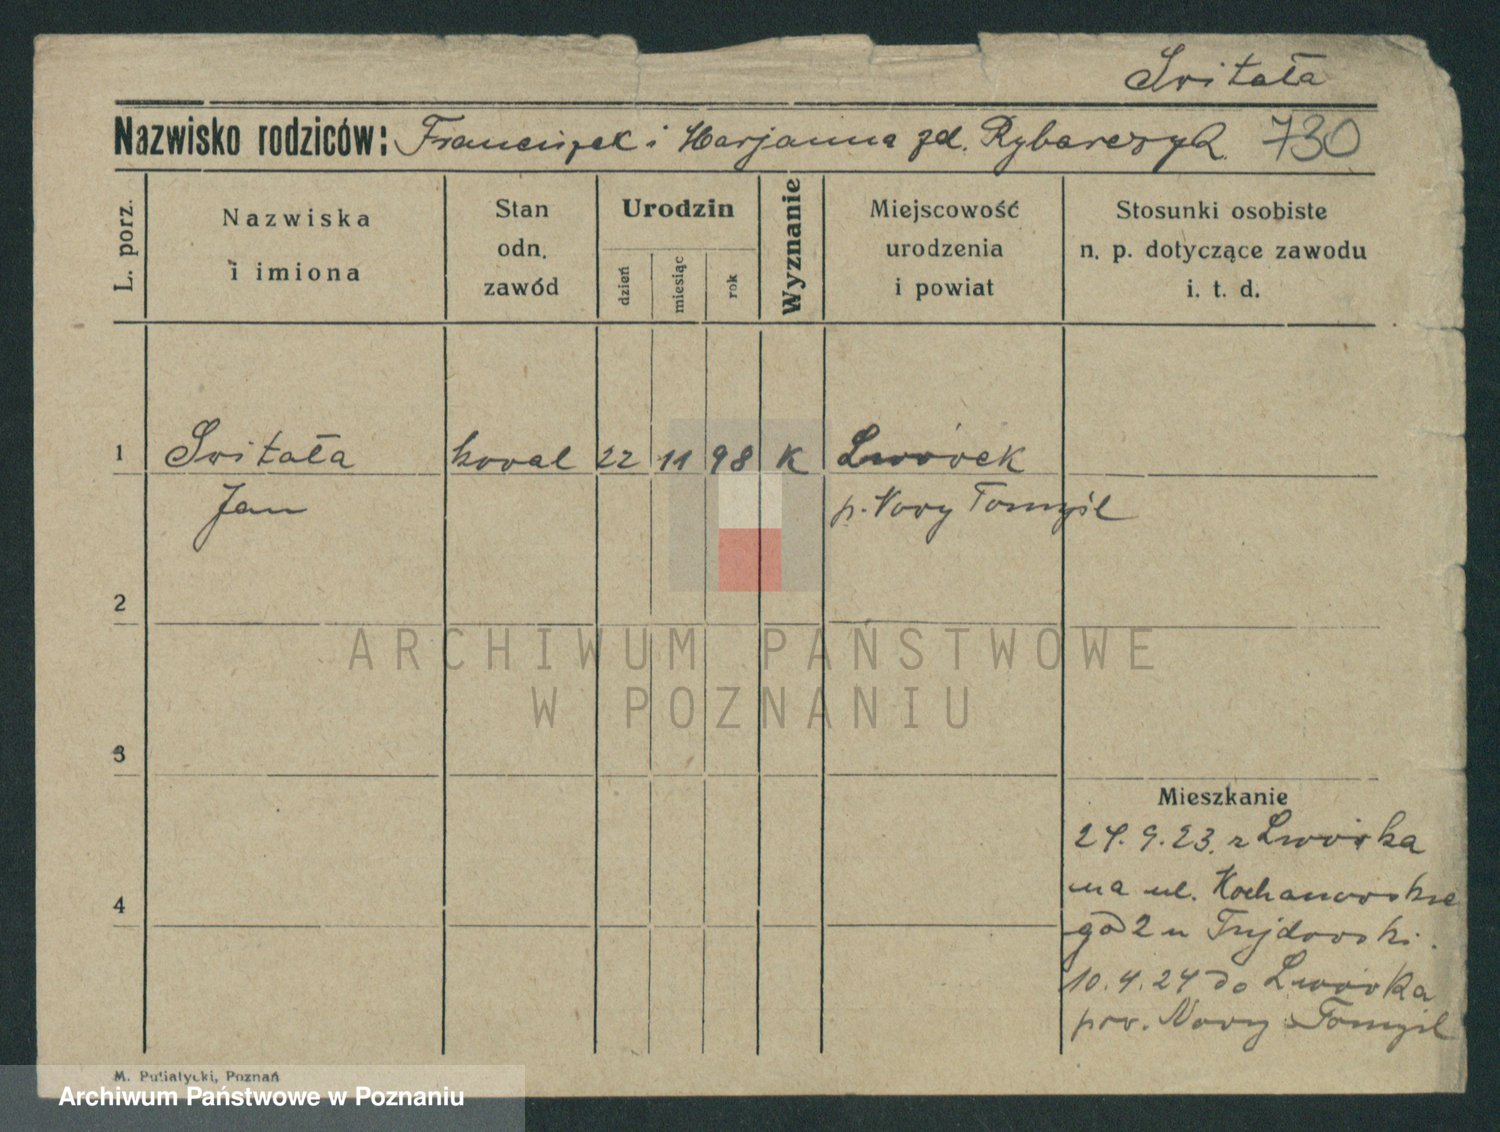 Switała
Nazwisko rodziców: Franciszek i Marjanna zd. Rybarczyk 730
L. porz.
Nazwiska
i imiona
Stan
odn.
zawód
Urodzin
dzień
miesiąc
rok
Wyznanie
Miejscowość
urodzenia
i powiat
Stosunki osobiste
n. p. dotyczące zawodu
i. t. d.
1 Switała kowal 22 11 98 K Lwówek
Jan p. Nowy Tomyśl
2
ARCHIWUM PAŃSTWOWE
W POZNANIU
3
Mieszkanie
24.9.23. z Lwówka
na ul. Kochanowskie
go 2 u
4
10.4.24 do Lwówka
pow. Nowy Tomyśl
M. Putiatycki, Poznań
Archiwum Państwowe w Poznaniu